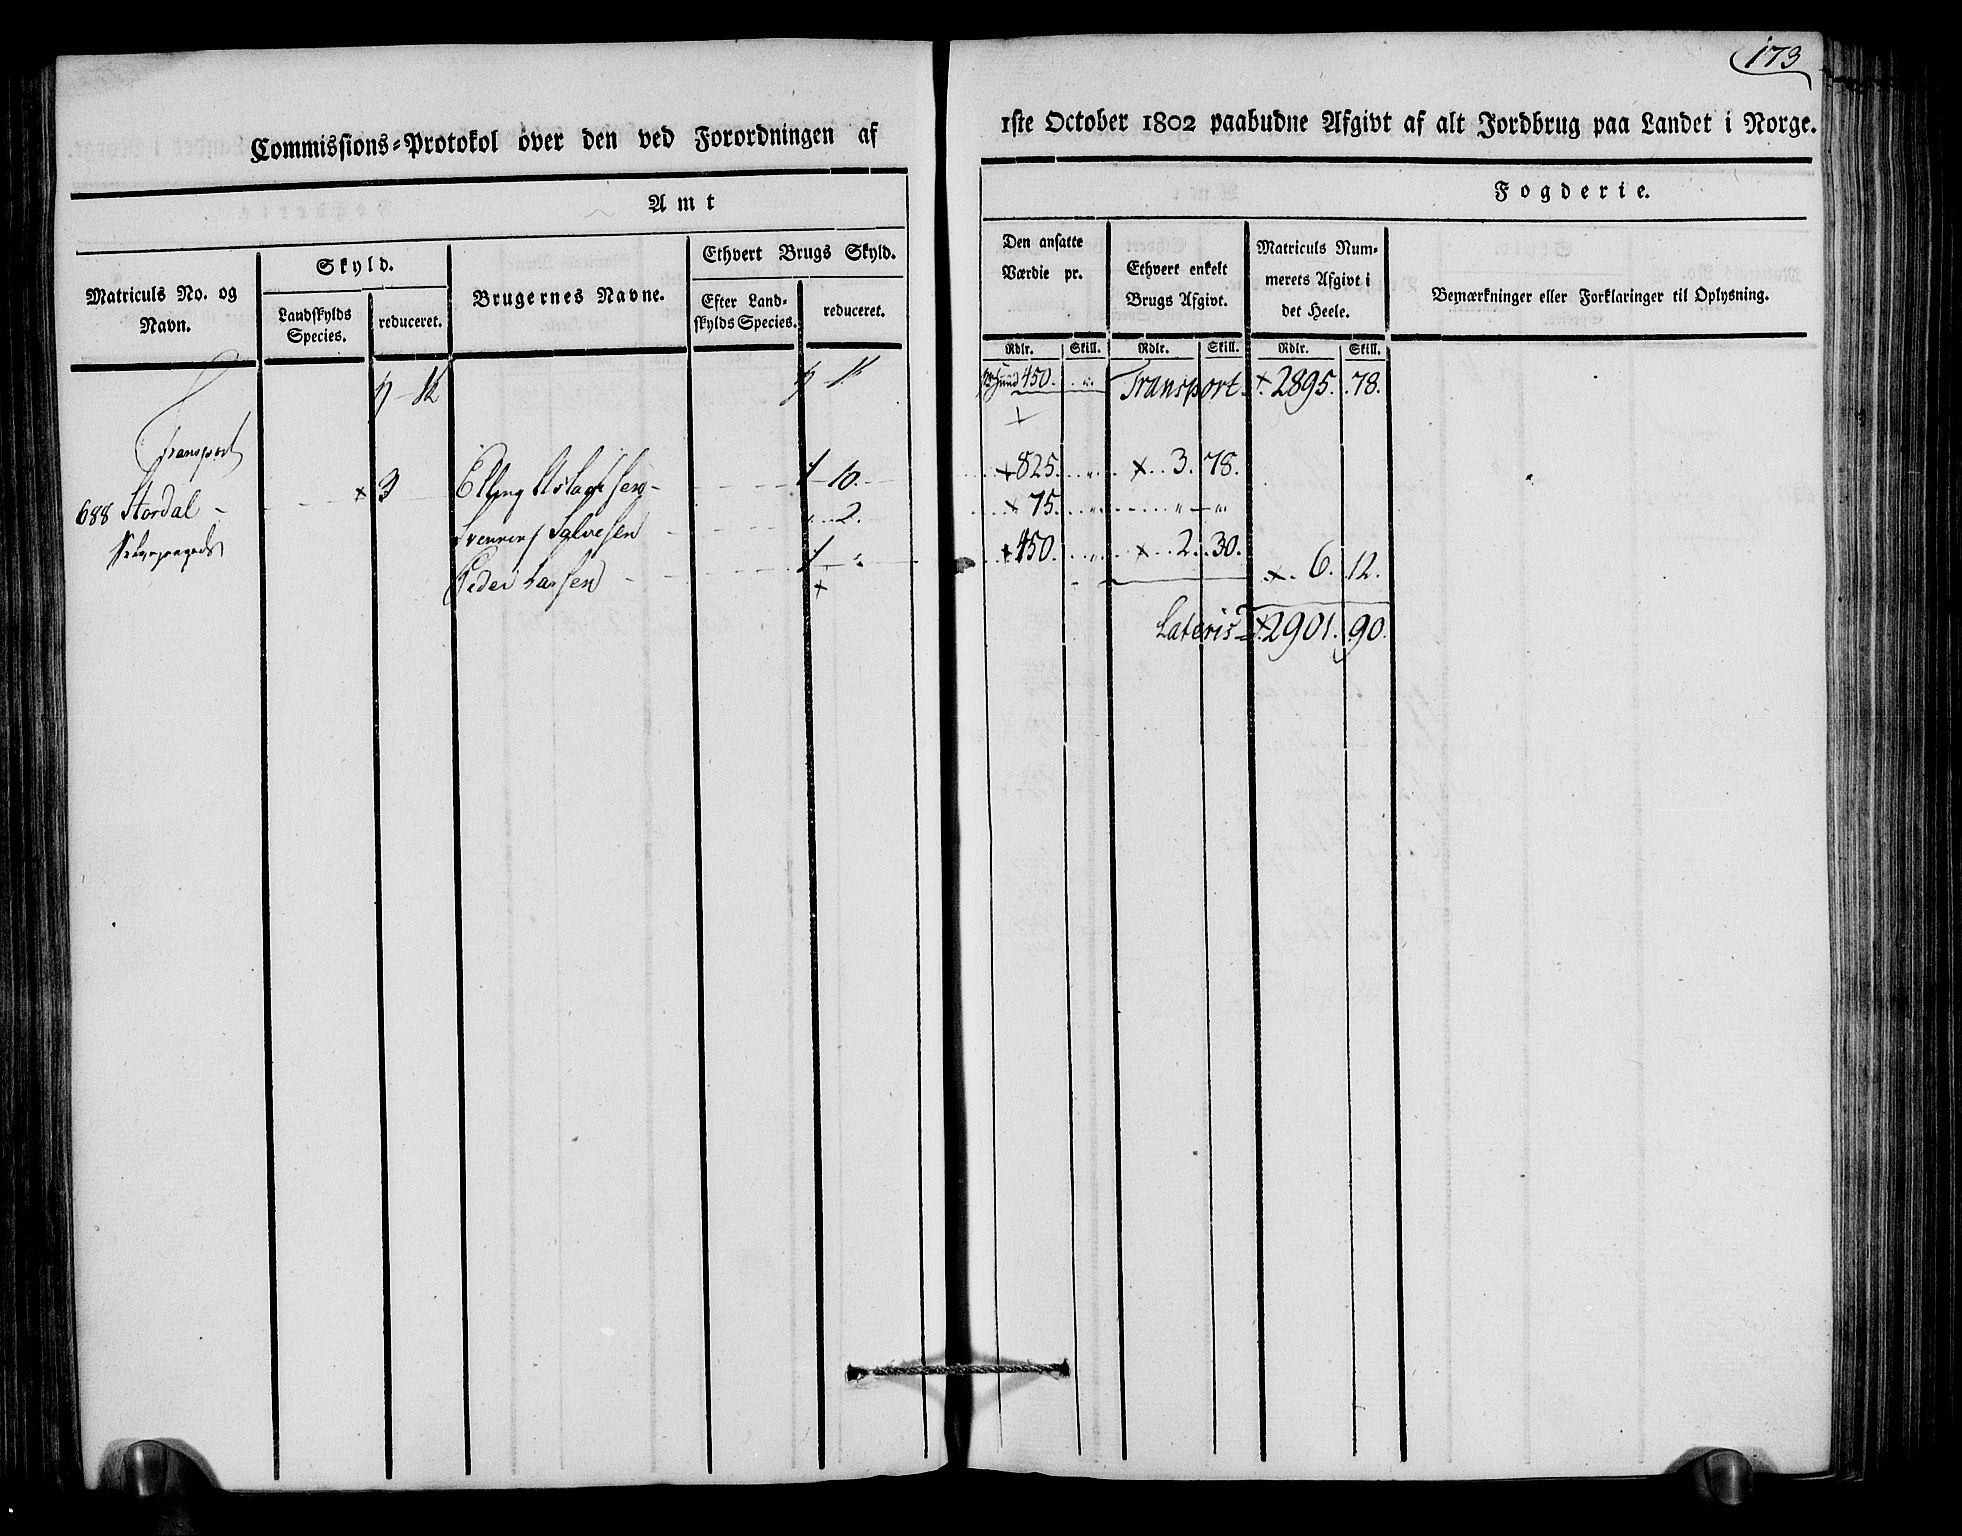 173
Commissions-Protokol over den ved Forordningen af
1ste October 1802 paabudne Afgivt af alt Jordbrug paa Landet i Norge.
Amt
Fogderie.
Matriculs No. og Navn.
Skyld.
Landskylds Species.
reduceret.
Brugernes Navne.
Ethvert Brugs Skyld.
Efter Landskylds Species.
reduceret.
Den ansatte Værdie pr.
Ethvert enkelt Brugs Afgivt.
Matriculs Nummerets Afgivt i det Heele.
Bemærkninger eller Forklaringer til Oplysning.
Rdlr. Skill. Rdlr. Skill. Rdlr. Skill.
450. Transport. 2895. 78.
Transport
688 Stordal 3 Elling Aslachsen 1 10. 825. 3. 78.
Salvesen 2. 75.
Peder Larsen 1 450. 2. 30. 6. 12.
Lateris 2901. 90.